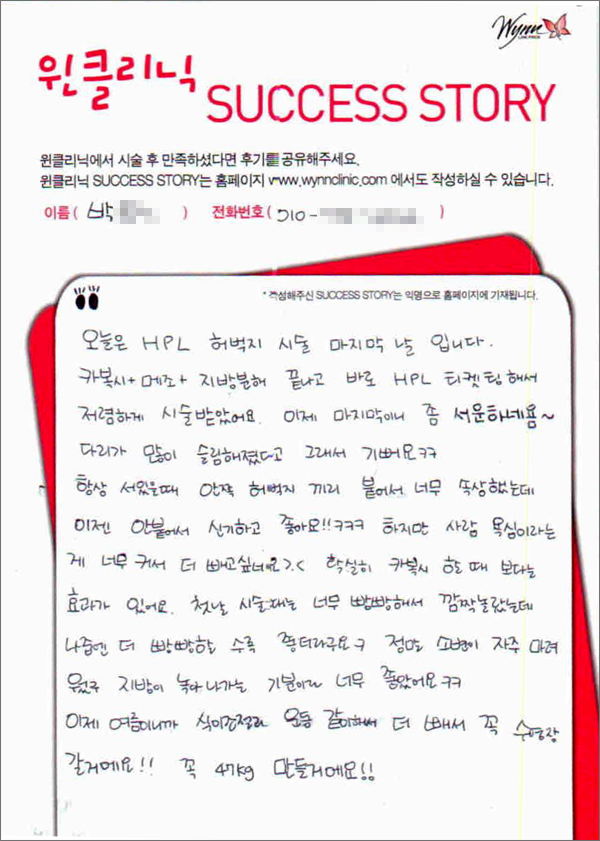 Wynn
윈클리닉
SUCCESS STORY
윈클리닉에서 시술 후 만족하셨다면 후기를 공유해주세요.
윈클리닉 SUCCESS STORY는 홈페이지 www.wynnclinic.com 에서도 작성하실 수 있습니다.
이름 ( 박 ) 전화번호 ( 010 - )
* 작성해주신 SUCCESS STORY는 익명으로 홈페이지에 기재됩니다.
오늘은 HPL 허벅지 시술 마지막 날 입니다.
카복시+메조+지방분해 끝나고 바로 HPL 티켓팅해서
저렴하게 시술받았어요. 이제 마지막이니 좀 서운하네욤~
다리가 많이 슬림해졌다고 그래서 기뻐요ㅋㅋ
항상 서있을때 안쪽 허벅지 끼리 붙어서 너무 속상했는데
이젠 안붙어서 신기하고 좋아요!!ㅋㅋㅋ 하지만 사람 욕심이라는
게 너무 커서 더 빼고싶네요>.< 확실히 카복시 할 때 보다는
효과가 있어요. 첫날 시술때는 너무 빵빵해서 깜짝놀랐는데
나중엔 더 빵빵할 수록 좋더라구요ㅋ 정말 소변이 자주 마려
웠구 지방이 녹아 나가는 기분이라 너무 좋았어요ㅋㅋ
이제 여름이니까 식이조절과 운동 같이해서 더 빼서 꼭 수영장
갈거에요!! 꼭 47kg 만들거에요!!